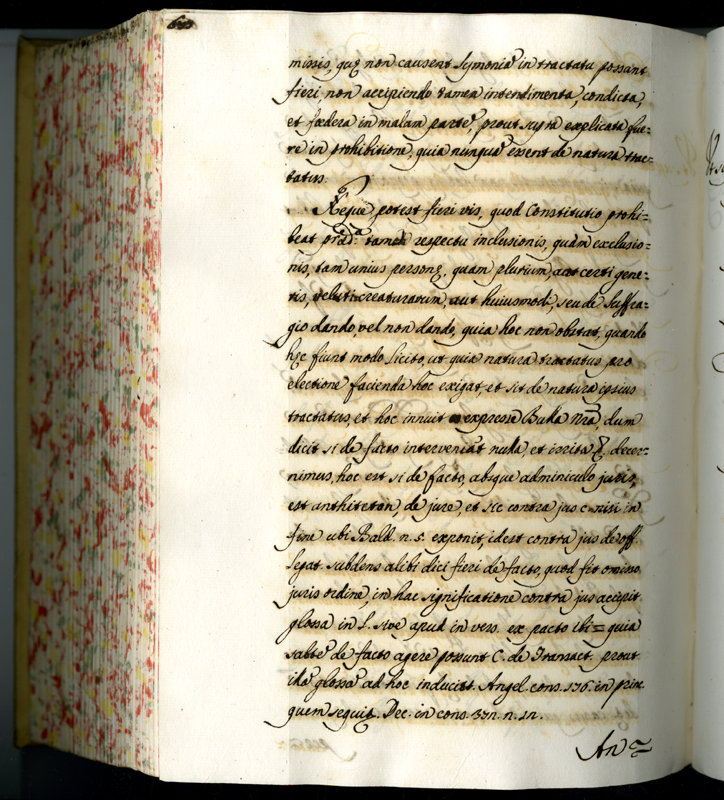 missis, quę non causent Symonia' in tractatu possunt
fieri, non accipiendo tamen intendimenta, condicta,
et fœdera in malam parte', prout supra explicata fue=
re in prohibitione, quia nunqua' essent de natura trac=
tatus.
Neque potest fieri vis, quod Constitutio prohi=
beat præd.ª tamen respectu inclusionis, quam exclusio=
nis, tam unius personę, quam plurium, aut certi gene=
ris, veluti creaturarum, aut huiusmodi, seu de suffra=
gio dando, vel non dando, quia hoc non obstat, quando
hęc fiunt modo licito, ut quia natura tractatus pro
electione facienda hoc exigat, et sit de natura ipsius
tractatus, et hoc innuit expresse Bulla nra, dum
dicit si de facto interveniat nulla, et irrita &. decer=
nimus, hoc est si de facto, absque adminiculo juris,
est anthiteton, de jure, et sic contra jus c. nisi in
fine ubi Bald. n. 5. exponit, idest contra jus de off.
legat subdens alibi dici fieri de facto, quod fit omisso
juris ordine, in hac significatione contra jus accipit
glossa in l. sive apud in vers. ex pacto ibi = quia
salte' de facto agere possunt C. de Transact. prout
ita' glossa' ad hoc inducit. Angel. cons. 176. in prin.
quem sequit. Dec. in cons. 37n. n. 1n.
An